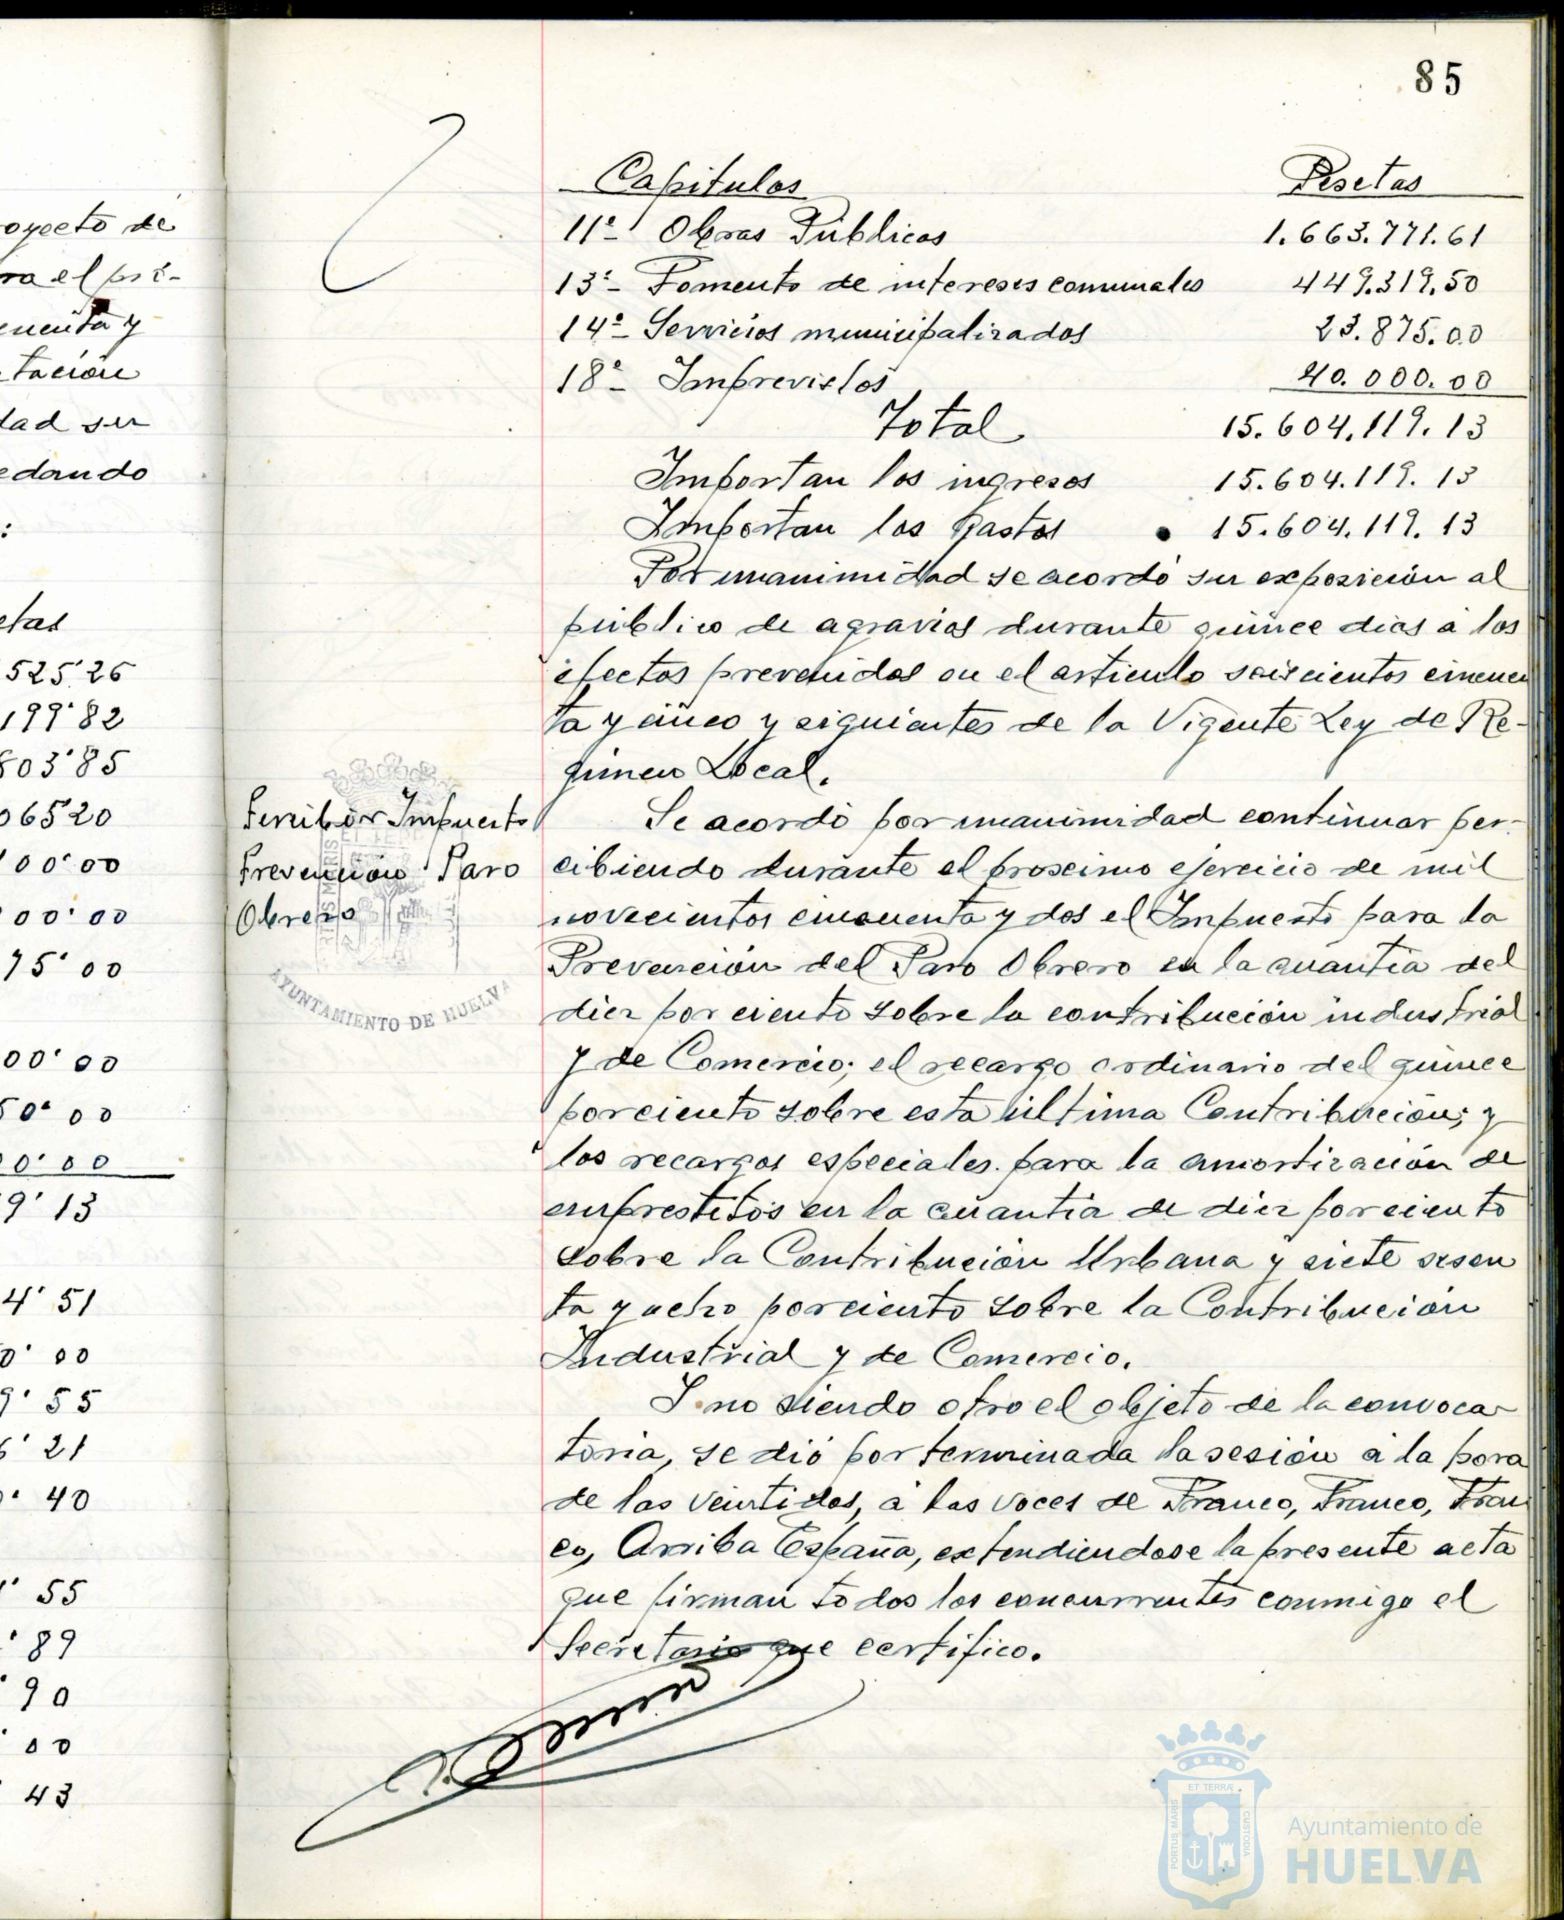 85
oyecto de
ra el pri-
cuenta y
tación
dad su
edando
:
etas
525'26
199'82
803'85
065'20
00'00
00'00
75'00
00'00
50'00
00'00
9'13
4'51
0'00
9'55
6'21
0'40
1'55
'89
'90
'00
'43
Capitulos Pesetas
11º- Obras Públicas 1.663.771.61
13º- Fomento de intereses comunales 449.319,50
14º- Servicios municipalizados 23.875.00
18º- Imprevistos 40.000.00
Total 15.604.119.13
Importan los ingresos 15.604.119.13
Importan los gastos 15.604.119.13
Por unanimidad se acordó su exposición al
público de agravios durante quince dias a los
efectos prevenidos en el artículo seiscientos cincuen
ta y cinco y siguientes de la Vigente Ley de Ré-
gimen Local.
Percibir Impuesto
Prevención Paro
Obrero
AYUNTAMIENTO DE HUELVA
Se acordó por unanimidad continuar per-
cibiendo durante el proximo ejercicio de mil
novecientos cincuenta y dos el Impuesto para la
Prevención del Paro Obrero en la cuantía del
diez por ciento sobre la contribución industrial
y de Comercio; el recargo ordinario del quince
por ciento sobre esta última Contribución; y
los recargos especiales para la amortización de
emprestitos en la cuantía de diez por ciento
sobre la Contribución Urbana y siete sesen
ta y ocho por ciento sobre la Contribución
Industrial y de Comercio.
Y no siendo otro el objeto de la convoca-
toria, se dió por terminada la sesión a la hora
de las veintidos, a las voces de Franco, Franco, Fran
co, Arriba España, extendiendose la presente acta
que firman todos los concurrentes conmigo el
Secretario que certifico.
ET TERRÆ
PORTUS MARIS
CUSTODIA
Ayuntamiento de
HUELVA